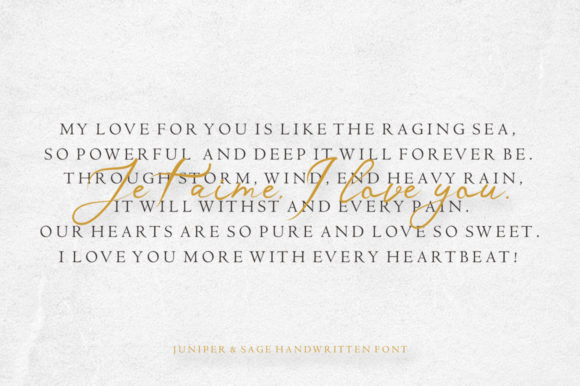 MY LOVE FOR YOU IS LIKE THE RAGING SEA,
SO POWERFUL AND DEEP IT WILL FOREVER BE.
THROUGH STORM, WIND, END HEAVY RAIN,
Je t'aime, I love you.
IT WILL WITHST AND EVERY PAIN.
OUR HEARTS ARE SO PURE AND LOVE SO SWEET.
I LOVE YOU MORE WITH EVERY HEARTBEAT!
JUNIPER & SAGE HANDWRITTEN FONT